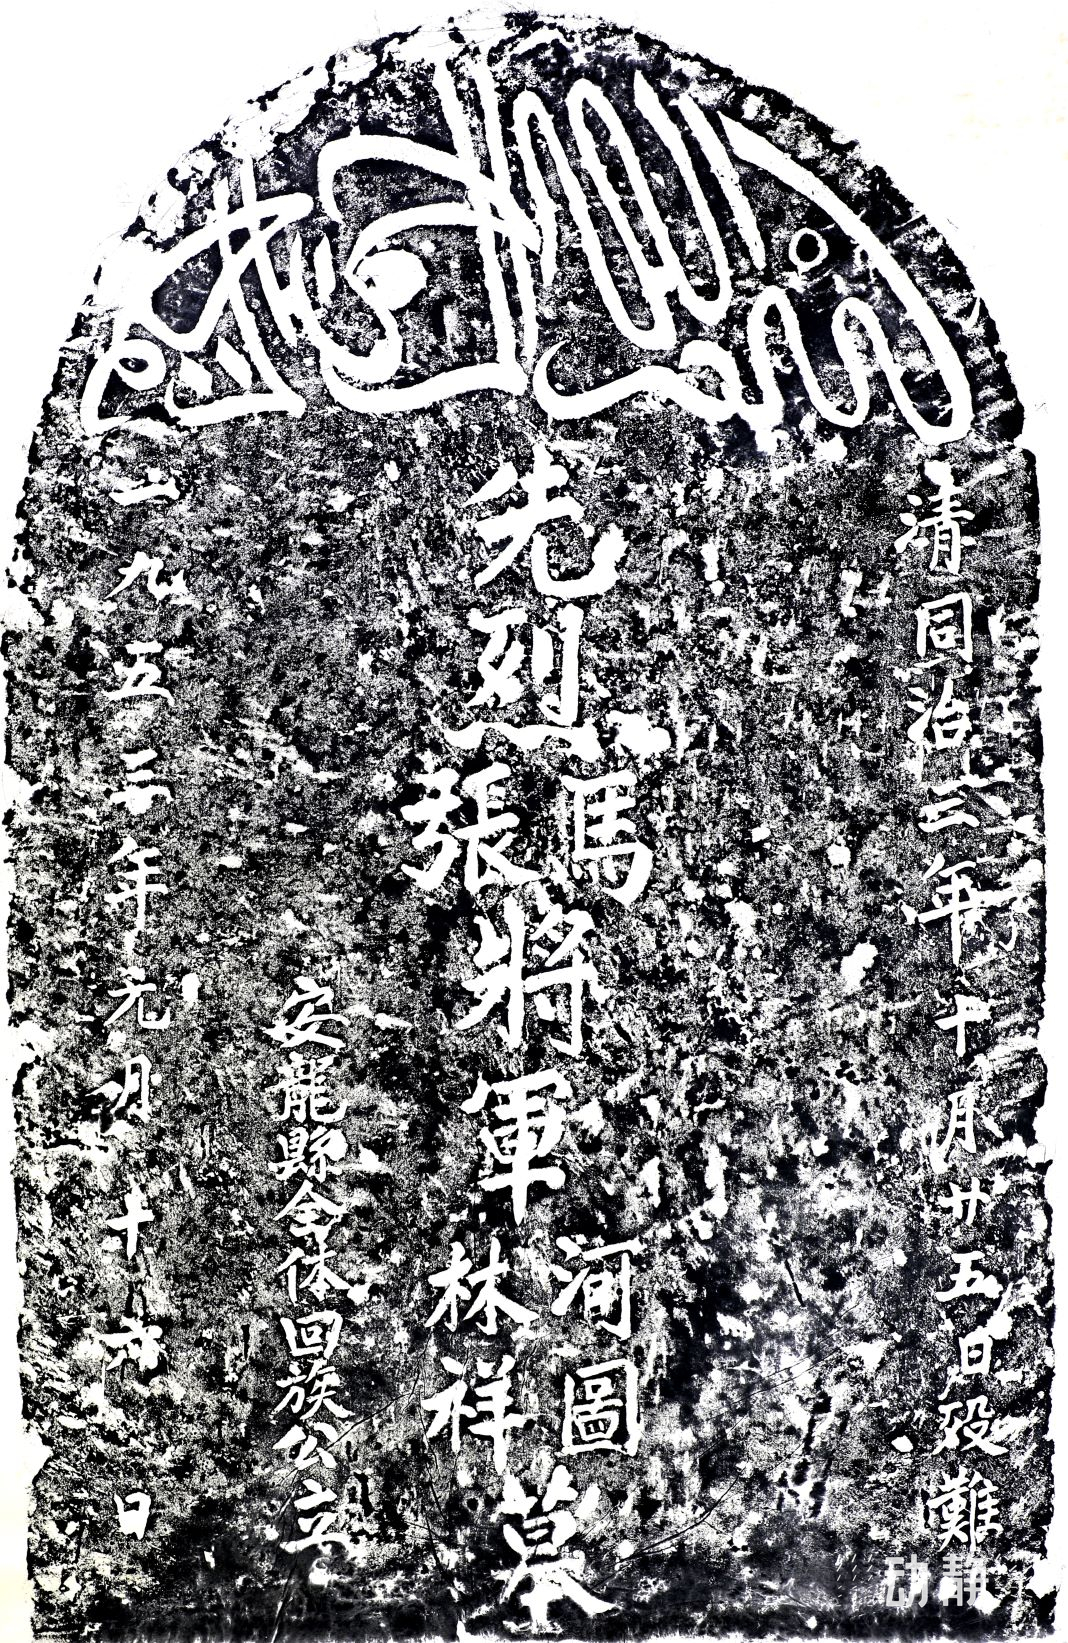 بسم الله الرحمن الرحيم
清同治三年十月廿五日殁難
先烈馬張將軍河圖林祥墓
安龍縣全体回族公立
一九五三年元月十六日
动静